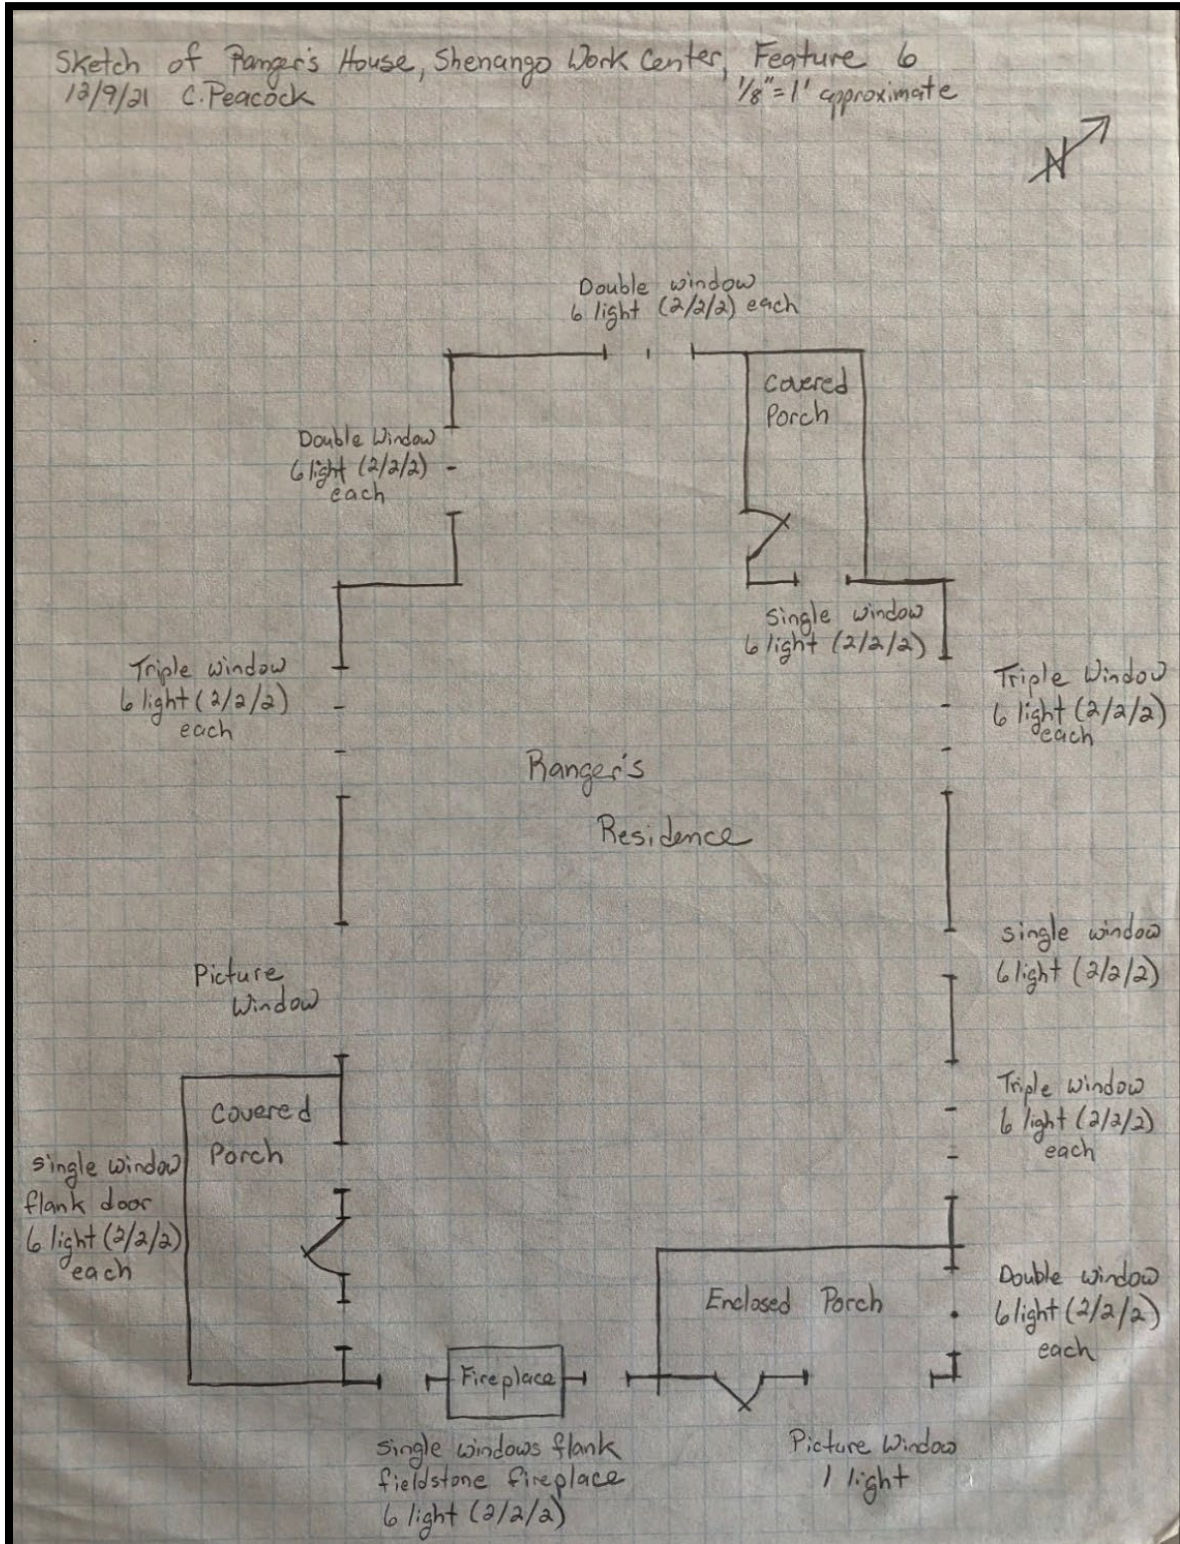 Sketch of Ranger's House, Shenango Work Center, Feature 6
12/9/21 C. Peacock
1/8"=1' approximate
N
Double window
6 light (2/2/2) each
Covered
Porch
Double Window
6 light (2/2/2)
each
Single window
6 light (2/2/2)
Triple window
6 light (2/2/2)
each
Triple Window
6 light (2/2/2)
each
Ranger's
Residence
single window
6 light (2/2/2)
Picture
Window
Covered
Porch
single window
flank door
6 light (2/2/2)
each
Triple window
6 light (2/2/2)
each
Enclosed Porch
Double window
6 light (2/2/2)
each
Fireplace
single windows flank
fieldstone fireplace
6 light (2/2/2)
Picture Window
1 light